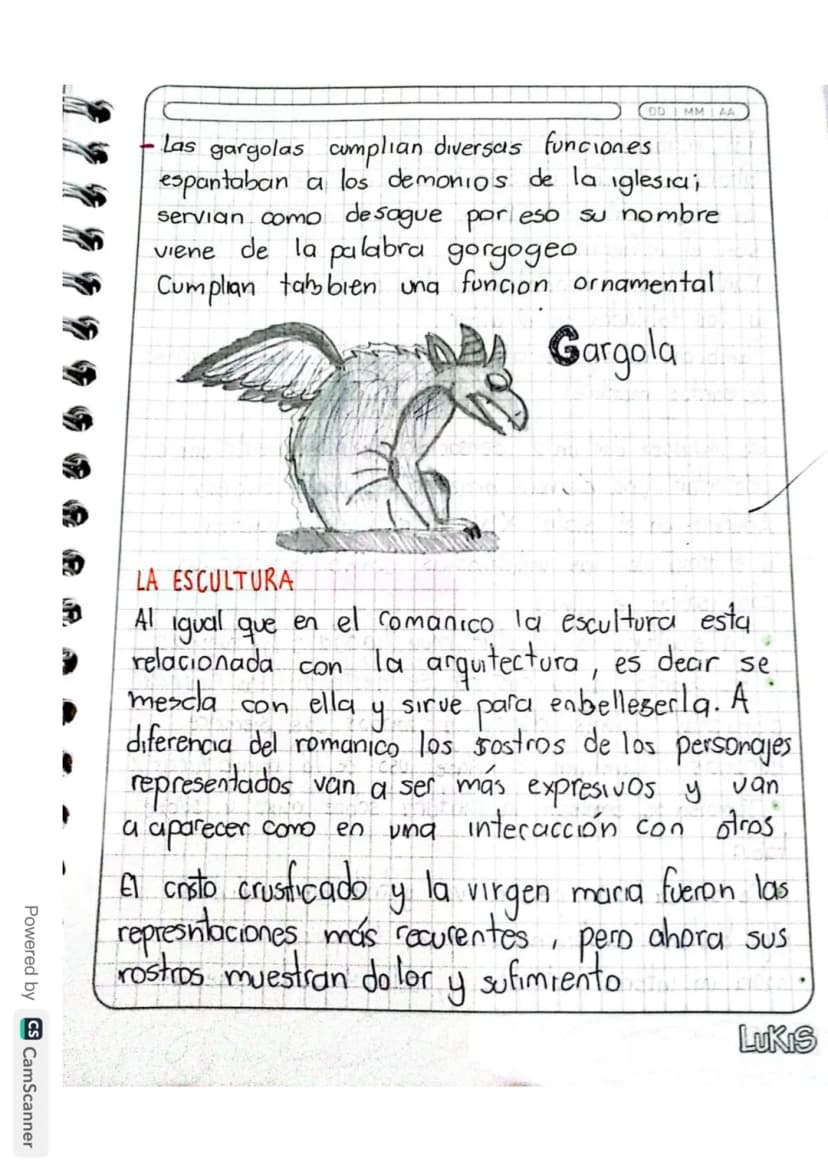 DD | MM | AA
- Las gargolas cumplian diversas funciones
espantaban a los demonios de la iglesia;
servian como desague por eso su nombre
viene de la palabra gorgogeo
Cumplian tabbien una funcion ornamental
Gargola
LA ESCULTURA
Al igual que en el romanico la escultura esta
relacionada con la arquitectura, es decir se
mezcla con ella y sirve para enbelleserla. A
diferencia del romanico los rostros de los personajes
representados van a ser más expresivos y van
a aparecer como en una interacción con otros
El cristo crusficado y la virgen maria fueron las
represntaciones más recurentes, pero ahora sus
rostros muestran dolor y sufimiento
LUKIS
Powered by CS CamScanner